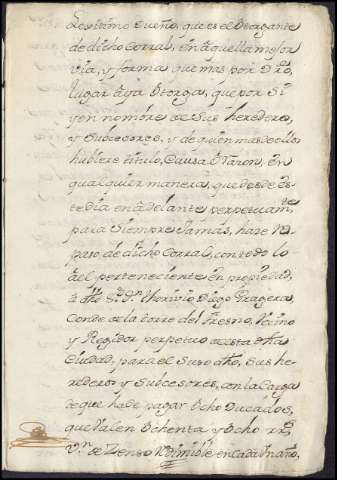 Lexitimo Dueño, que es el Otorgante
de dicho Corral, en aquella mejor
via, y forma que mas por dro,
lugar aya Otorga, que por Si
y en nombre de Sus herederos,
y Subcesores, y de quien mas de ellos
hubiere titulo, Causa ô razon, en
qualquier manera, que desde es-
te dia en adelante perpetuamte
para Siempre Jamas, haze
de dicho Corral, con todo lo
a el perteneciente en propiedad,
â dho Sr. Dn. Thorivio Diego Pragera
Conde de la torre del Fresno, Vezino
y Rexidor perpetuo de esta dha
Ciudad, para el Suso dho, Sus he-
rederos y Subcesores, con la Carga
de que ha de pagar Ocho Ducados,
que valen Ochenta y Ocho rrs
Vn. de Zenso Redimible en Cada Un año,